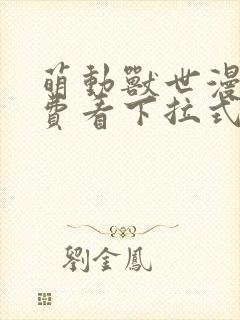 萌動獸世漫
費看下拉式
劉金鳳